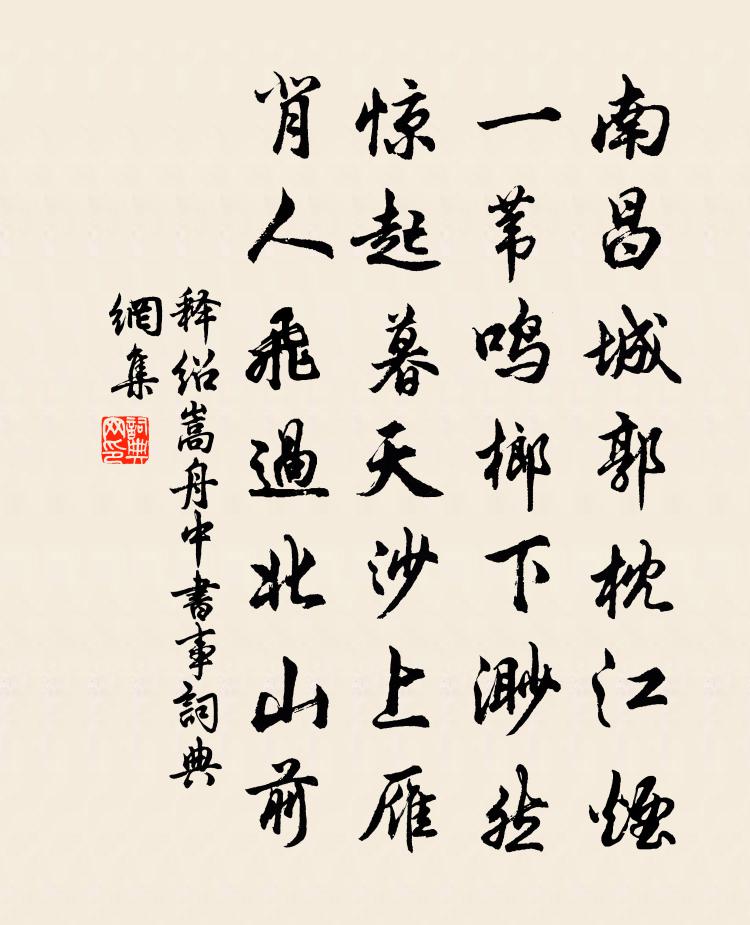 南昌城郭枕江煙
一苇鸣榔下渺然
惊起暮天沙上雁
背人飛過北山前
释绍嵩舟中書事詞典
網集
詞典
网印